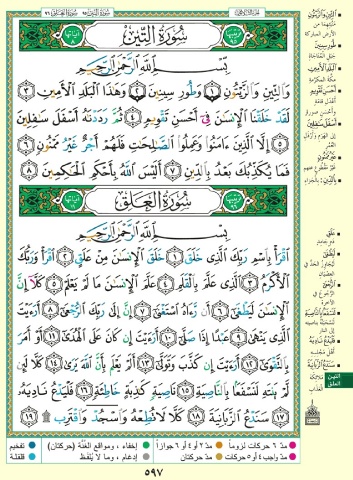 سُورَةُ التِّينِ
بِسْمِ اللَّهِ الرَّحْمَٰنِ الرَّحِيمِ
وَالتِّينِ وَالزَّيْتُونِ ١ وَطُورِ سِينِينَ ٢ وَهَٰذَا الْبَلَدِ الْأَمِينِ ٣
لَقَدْ خَلَقْنَا الْإِنسَٰنَ فِي أَحْسَنِ تَقْوِيمٍ ٤ ثُمَّ رَدَدْنَٰهُ أَسْفَلَ سَٰفِلِينَ
٥ إِلَّا الَّذِينَ ءَامَنُوا وَعَمِلُوا الصَّٰلِحَٰتِ فَلَهُمْ أَجْرٌ غَيْرُ مَمْنُونٍ ٦
فَمَا يُكَذِّبُكَ بَعْدُ بِالدِّينِ ٧ أَلَيْسَ اللَّهُ بِأَحْكَمِ الْحَٰكِمِينَ ٨
سُورَةُ الْعَلَقِ
بِسْمِ اللَّهِ الرَّحْمَٰنِ الرَّحِيمِ
اقْرَأْ بِاسْمِ رَبِّكَ الَّذِي خَلَقَ ١ خَلَقَ الْإِنسَٰنَ مِنْ عَلَقٍ ٢ اقْرَأْ وَرَبُّكَ
الْأَكْرَمُ ٣ الَّذِي عَلَّمَ بِالْقَلَمِ ٤ عَلَّمَ الْإِنسَٰنَ مَا لَمْ يَعْلَمْ ٥ كَلَّا إِنَّ
الْإِنسَٰنَ لَيَطْغَىٰ ٦ أَن رَّءَاهُ اسْتَغْنَىٰ ٧ إِنَّ إِلَىٰ رَبِّكَ الرُّجْعَىٰ ٨ أَرَءَيْتَ
الَّذِي يَنْهَىٰ ٩ عَبْدًا إِذَا صَلَّىٰ ١٠ أَرَءَيْتَ إِن كَانَ عَلَى الْهُدَىٰ ١١ أَوْ أَمَرَ
بِالتَّقْوَىٰ ١٢ أَرَءَيْتَ إِن كَذَّبَ وَتَوَلَّىٰ ١٣ أَلَمْ يَعْلَم بِأَنَّ اللَّهَ يَرَىٰ ١٤ كَلَّا لَئِن
لَّمْ يَنتَهِ لَنَسْفَعًا بِالنَّاصِيَةِ ١٥ نَاصِيَةٍ كَٰذِبَةٍ خَاطِئَةٍ ١٦ فَلْيَدْعُ نَادِيَهُ
١٧ سَنَدْعُ الزَّبَانِيَةَ ١٨ كَلَّا لَا تُطِعْهُ وَاسْجُدْ وَاقْتَرِب ١٩
مدّ ٦ حركات لزوماً مدّ ٢ أو ٤ أو ٦ جوازاً إخفاء، ومواقع الغنّة (حركتان) تفخيم
مدّ واجب ٤ أو ٥ حركات مدّ حركتان إدغام، وما لا يُلفظ قلقلة
٥٩٧